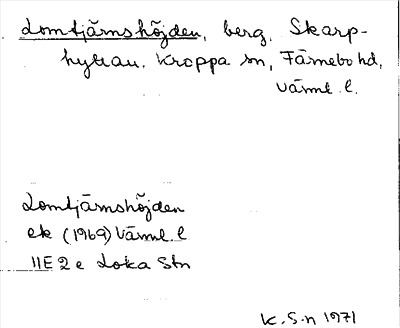 Lomtjärnshöjden, berg, Skarp-
hyttan. Kroppa sn, Färnebo hd,
Värml. l.
Lomtjärnshöjden
ek (1969) Värml. l
11E 2 e Loka Stn
K. S-n 1971